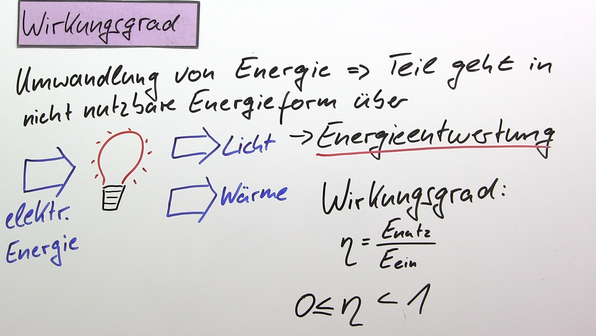 Wirkungsgrad
Umwandlung von Energie => Teil geht in
nicht nutzbare Energieform über
→ Energieentwertung
elektr.
Energie
Licht
Wärme
Wirkungsgrad:
η = Enutz / Eein
0 ≤ η < 1